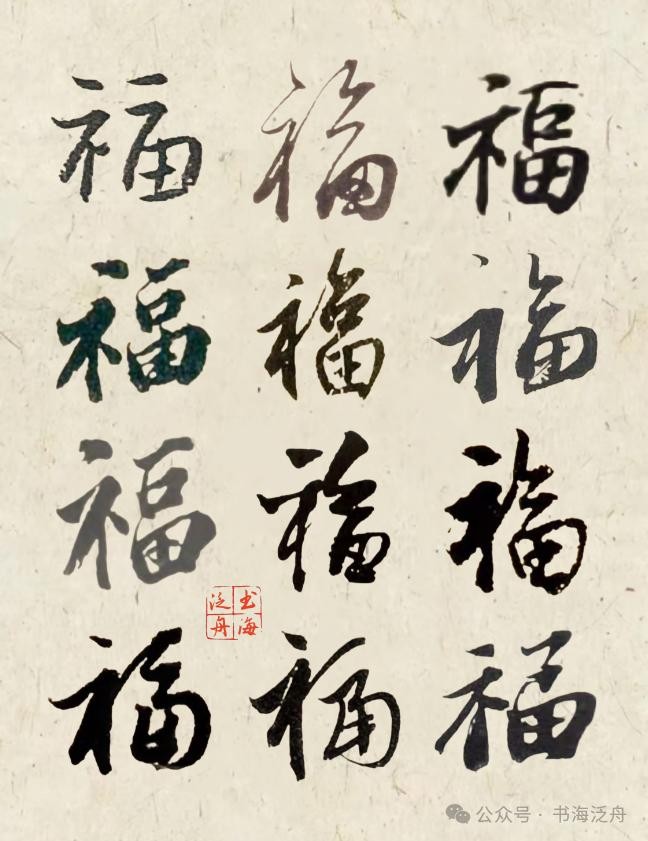 福 福 福
福 福 福
福 福 福
书海
泛舟
福 福 福
公众号 · 书海泛舟